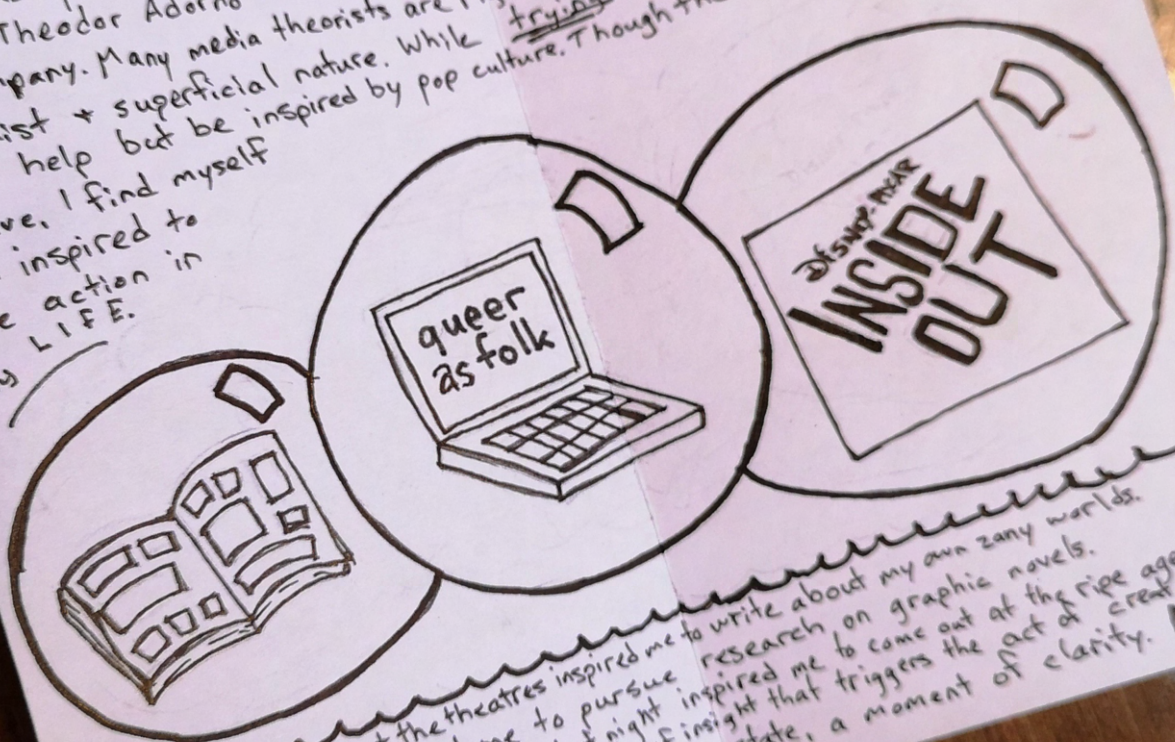 Theodor Adorno
Many media theorists are
trying
+ superficial nature. While
help but be inspired by pop culture. Though
I find myself
inspired to
action in
LIFE.
DISNEY·PIXAR
INSIDE
OUT
queer
as folk
the theatres inspired me to write about my own zany worlds.
to pursue research on graphic novels.
night inspired me to come out at the ripe
insight that triggers the act of
a moment of clarity.